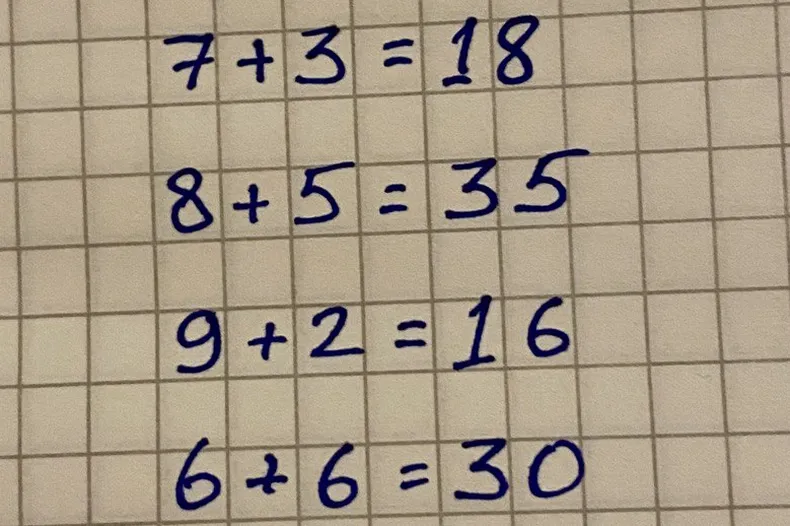 7 + 3 = 18
8 + 5 = 35
9 + 2 = 16
6 + 6 = 30